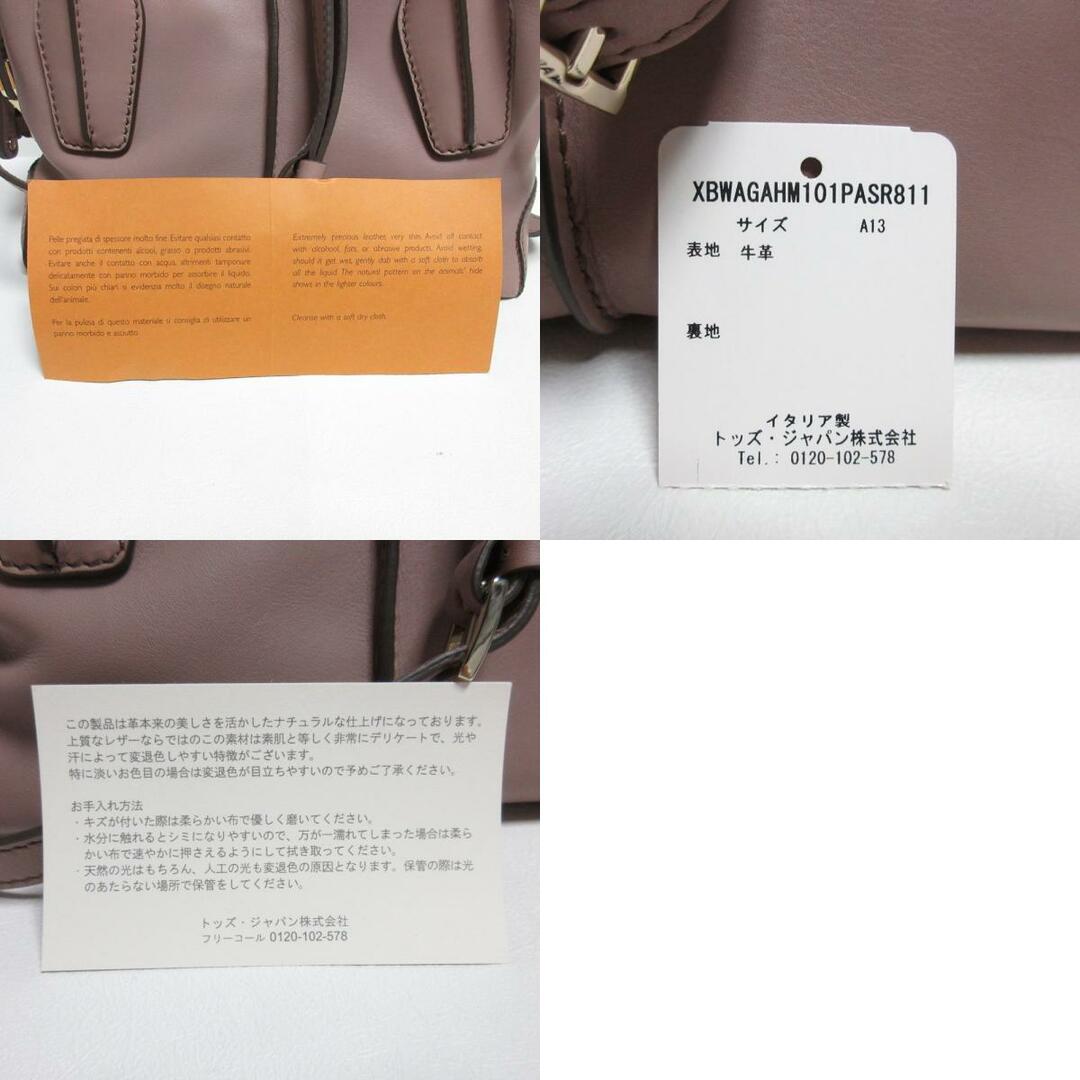 Pelle pregiata di spessore molto fine. Evitare qualsiasi contatto
con prodotti contenenti alcool, grasso o prodotti abrasivi.
Evitare anche il contatto con acqua, altrimenti tamponare
delicatamente con panno morbido per assorbire il liquido.
Sui colori più chiari si evidenzia molto il disegno naturale
dell'animale.
Per la pulizia di questo materiale si consiglia di utilizzare un
panno morbido e asciutto.
Extremely precious leather, very thin. Avoid all contact
with alcohool, fats, or abrasive products. Avoid wetting,
should it get wet, gently dab with a soft cloth to absorb
all the liquid. The natural pattern on the animals' hide
shows in the lighter colours.
Cleanse with a soft dry cloth.
XBWAGAHM101PASR811
サイズ A13
表地 牛革
裏地
イタリア製
トッズ・ジャパン株式会社
Tel.: 0120-102-578
この製品は革本来の美しさを活かしたナチュラルな仕上げになっております。
上質なレザーならではのこの素材は素肌と等しく非常にデリケートで、光や
汗によって変退色しやすい特徴がございます。
特に淡いお色目の場合は変退色が目立ちやすいので予めご了承ください。
お手入れ方法
・キズが付いた際は柔らかい布で優しく磨いてください。
・水分に触れるとシミになりやすいので、万が一濡れてしまった場合は柔ら
かい布で速やかに押さえるようにして拭き取ってください。
・天然の光はもちろん、人工の光も変退色の原因となります。保管の際は光
のあたらない場所で保管をしてください。
トッズ・ジャパン株式会社
フリーコール 0120-102-578